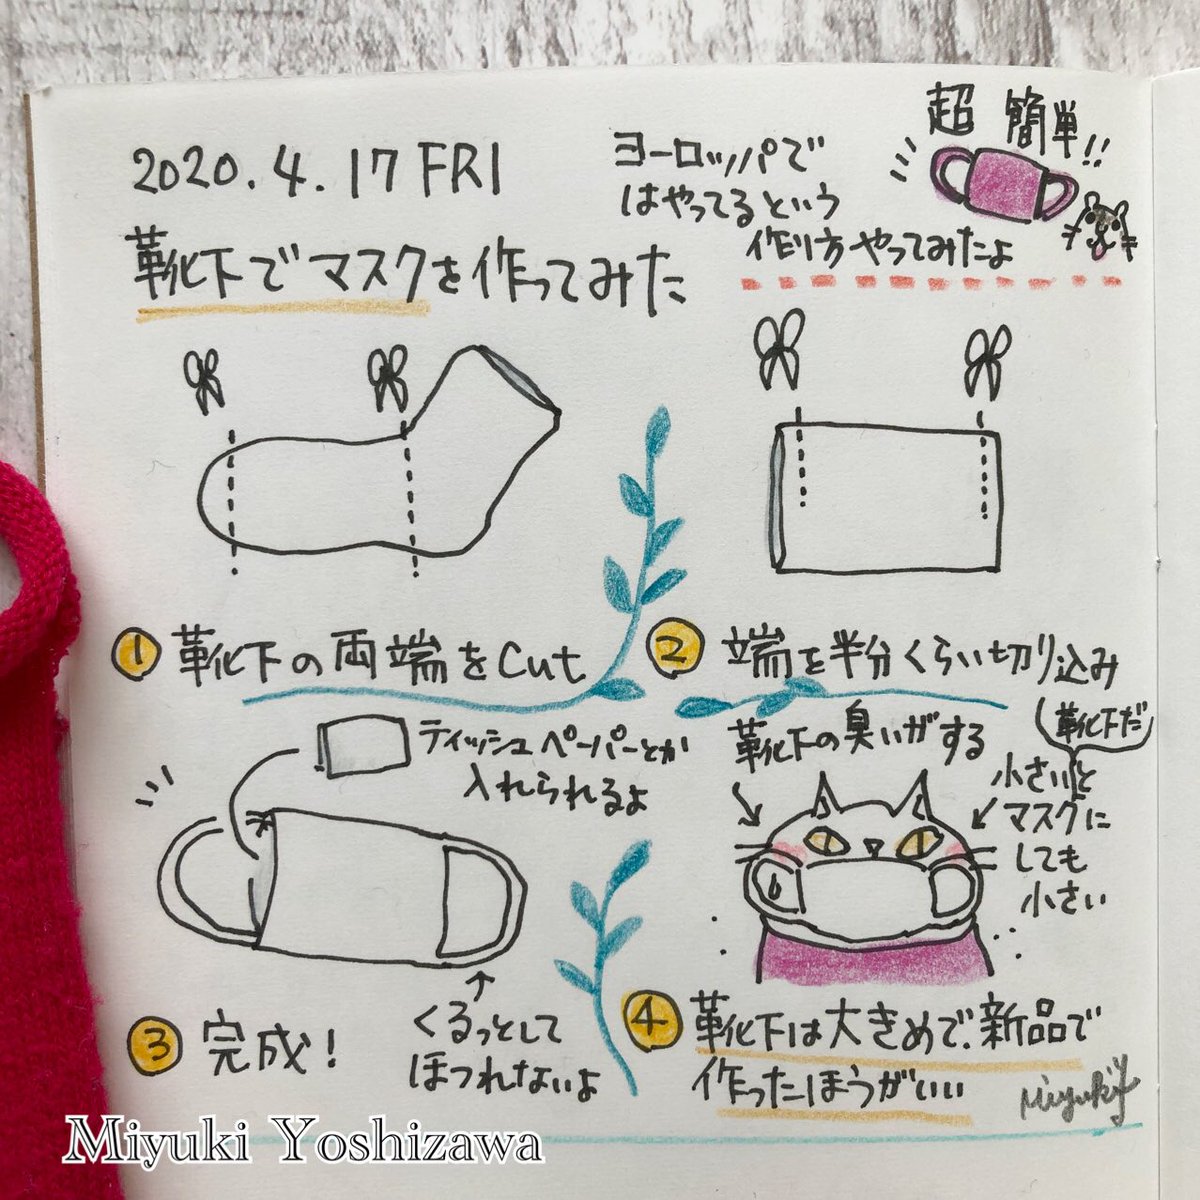 2020.4.17 FRI
靴下でマスクを作ってみた
超 簡単!!
ヨーロッパで
はやってるという
作り方やってみたよ
① 靴下の両端をCut
② 端を半分くらい切り込み
ティッシュペーパーとか
入れられるよ
③ 完成!
くるっとして
ほつれないよ
靴下の臭いがする
靴下だ
小さいと
マスクに
しても
小さい
④ 靴下は大きめで、新品で
作ったほうがいい
Miyuki Y
Miyuki Yoshizawa